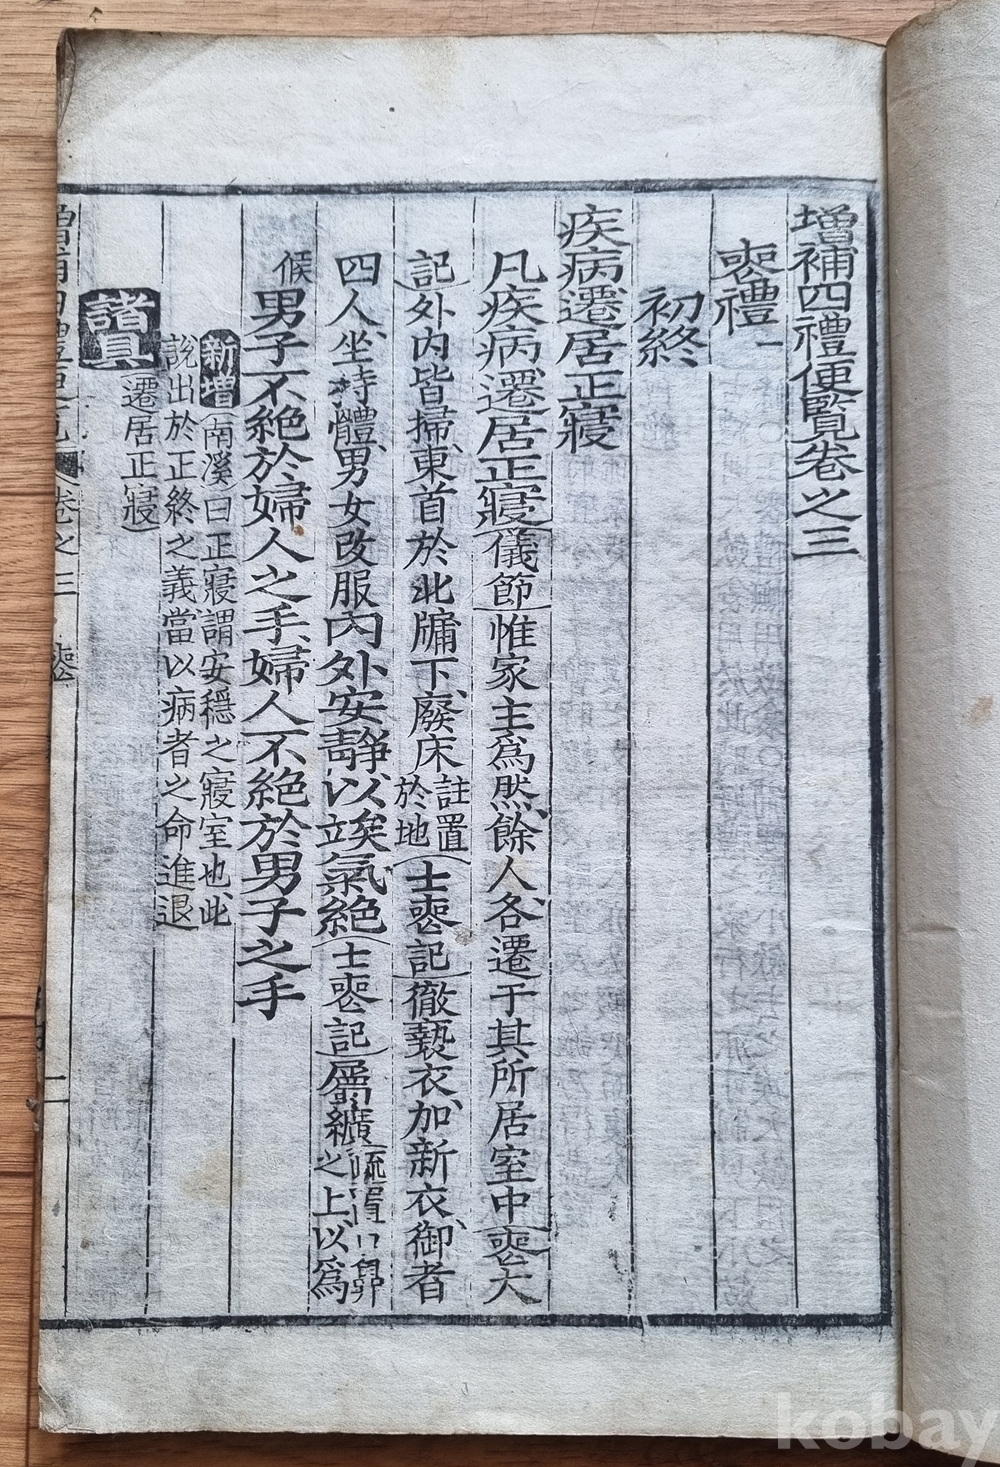 增補四禮便覽卷之三
喪禮一
初終
疾病遷居正寢
凡疾病遷居正寢(儀節)惟家主爲然餘人各遷于其所居室中(喪大
記)外內皆掃東首於北牖下廢床註置於地(士喪記)徹褻衣加新衣御者
四人坐持體男女改服內外安靜以竢氣絕(士喪記)屬纊疏置口鼻之上以爲
候男子不絕於婦人之手婦人不絕於男子之手
新增(南溪曰正寢謂安穩之寢室也此
說出於正終之義當以病者之命進退
諸具(遷居正寢)
增補四禮便覽 卷之三 喪 一
kobay